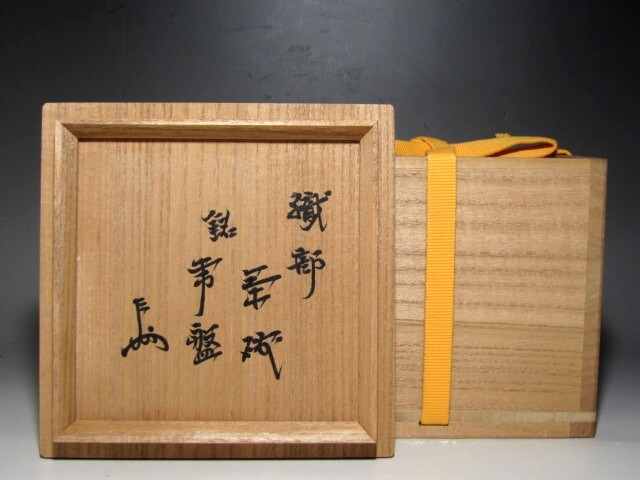 織部
茶碗
銘
常盤